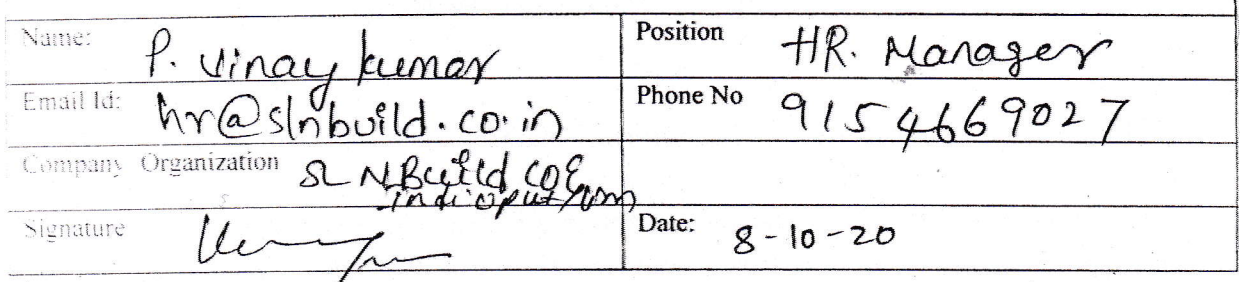 Name: P. Vinay kumar Position HR. Manager
Email Id: hr@slnbuild.co.in Phone No 9154669027
Company Organization SLNBuild
Signature Date: 8-10-20